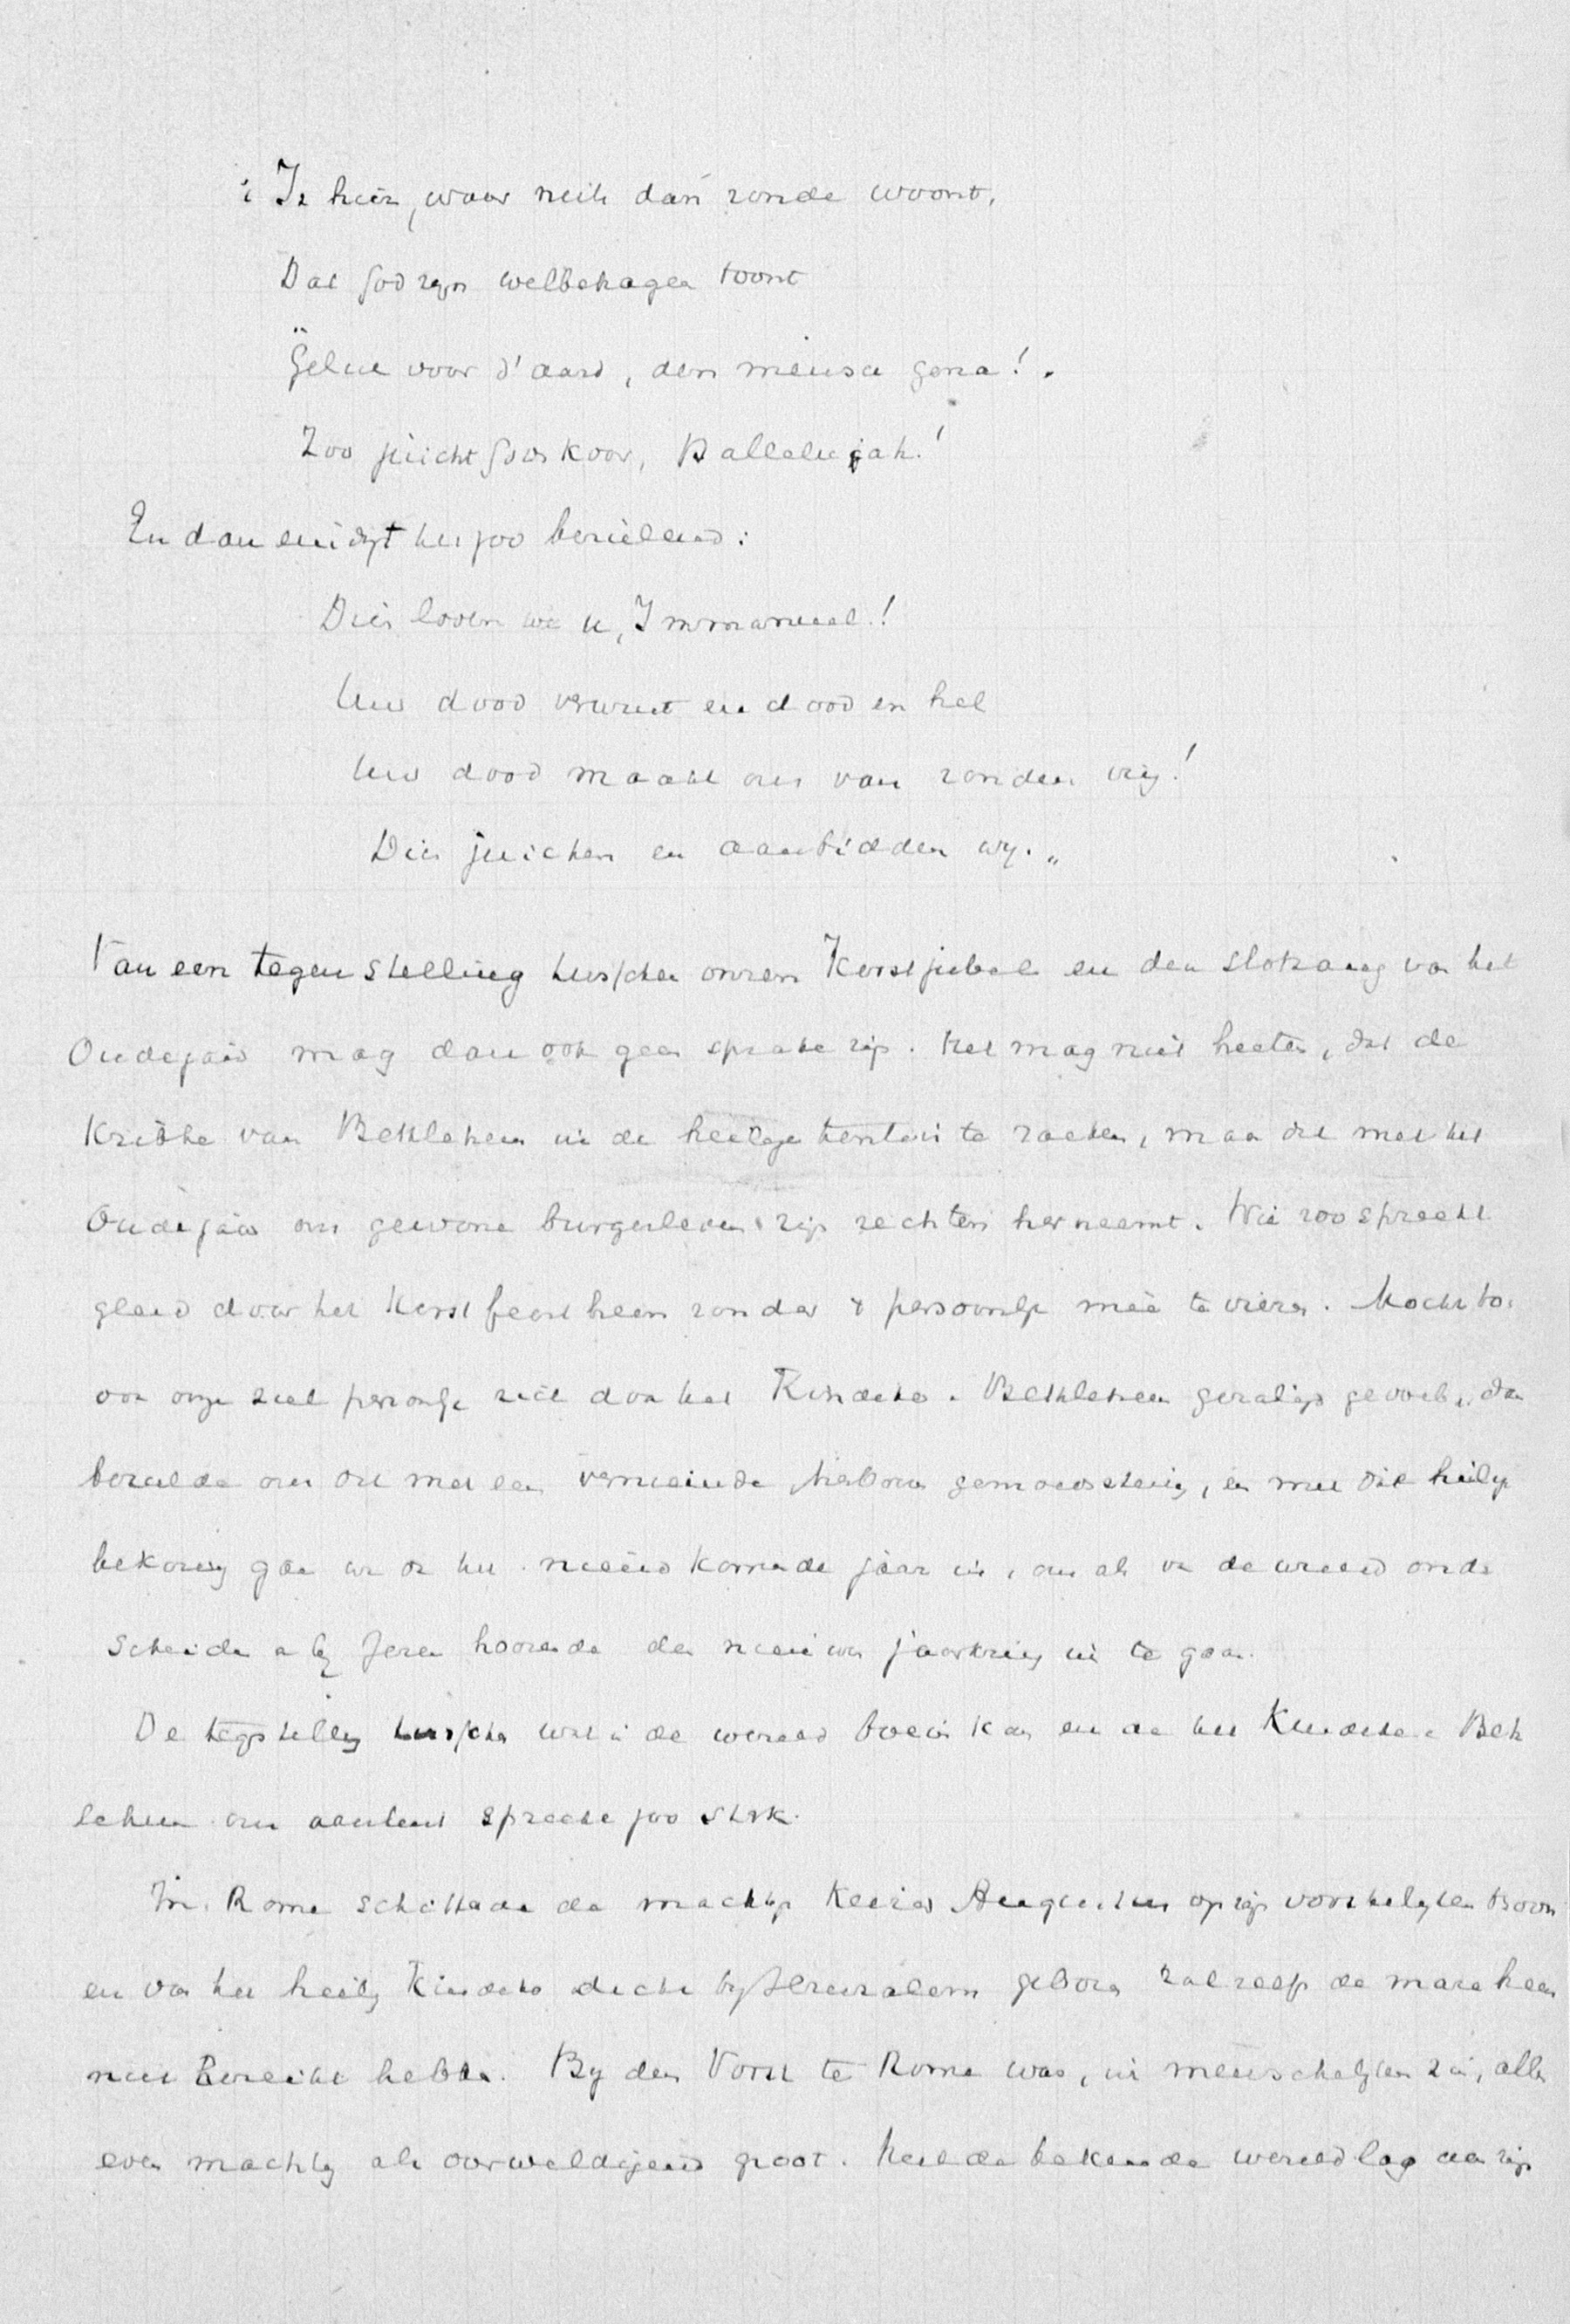 't Is hier, waar niets dan zonde woont,
Dat God zijn welbehagen toont
"Geluk voor d'aard, den mensch gena!"
Zoo juicht Gods koor, Hallelujah!
En dan eindigt het zoo bezielend:
Dies loven we u, Immanuel!
Uw dood verwint en dood en hel
Uw dood maakt ons van zonden vrij!
Dies juichen en aanbidden wij."
Van een tegenstelling tusschen onzen Kerstjubel en den slotzang van het
Oudejaar mag dan ook geen sprake zijn. Het mag niet heeten, dat de
Kribbe van Bethlehem in de heilige te zoeken, maar dat met het
Oudejaar ons gewone burgerleven zijn rechten herneemt. Wie zoo spreekt
gleed door het Kerstfeest heen zonder 't persoonlijk meê te vieren. Mocht toe
ook onze ziel persoonlijk zich door het Kindeke v. Bethlehem gezaligd gevoelen, dan
bezielde ons dit met een vernieuwde gemoedsstemming, en met die heilige
bekoring gaan we ook het nieuw komende jaar in, om als van de wereld onder
scheiden en bij Jezus hoorende den nieuwen jaarkring in te gaan.
De tegenstelling tusschen wat in de wereld boeien kan en de het Kindeke v. Beth
lehem ons aanbiedt spreekt zoo sterk.
In Rome schitterde de machtige Keizer Augustus op zijn vorstelijken troon
en van het heilig Kindeke dicht bij Jeruzalem geboren zal zelfs de mare hem
niet bereikt hebben. Bij den Vorst te Rome was, in menschelijken zin, alles
even machtig als overweldigend groot. Heel de bekende wereld lag aan zijn